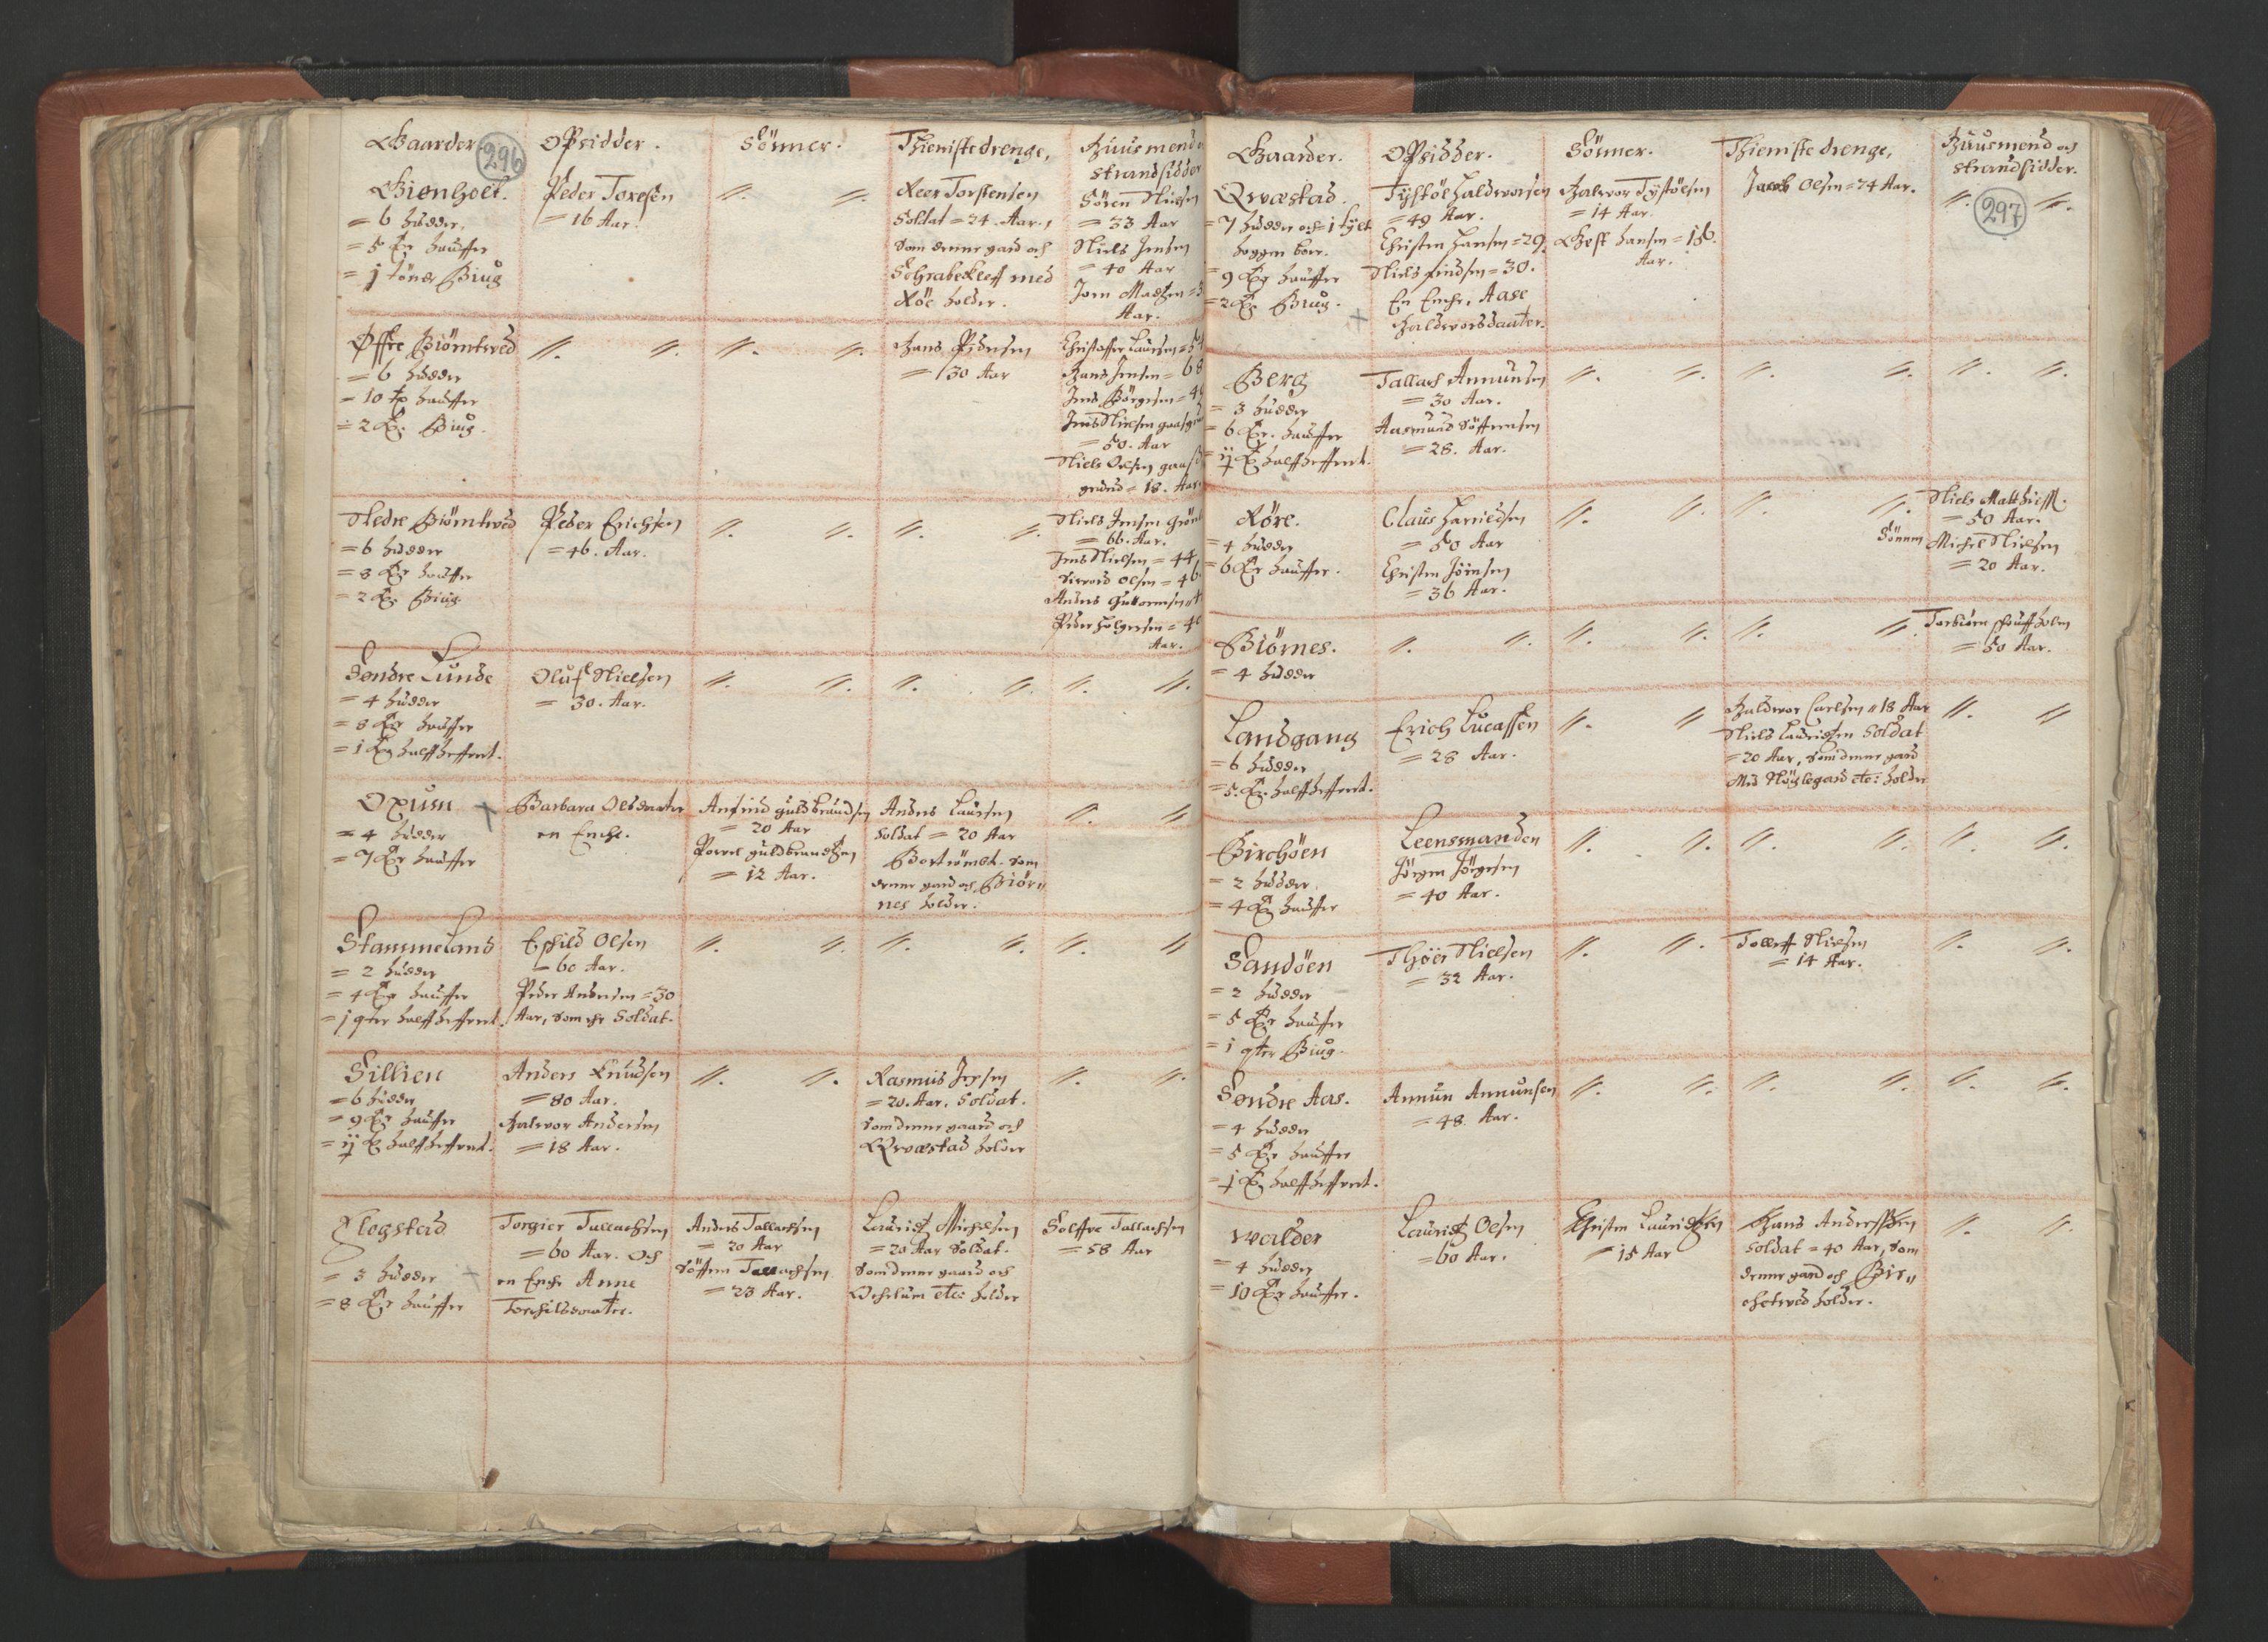 Gaarder
296
Opsidder.
Sönner.
Thienistedrenge,
Huusmend
strandsidder
Gienholt.
= 6 huder,
= 5 hauffre
= 1 tönde Biug
Peder Toresen
= 16 Aar.
Reer Torstensen
Soldat = 24. Aar,
som denne gard och
Schrabekleff med
Röe holder.
Sören Nielsen
= 33 Aar
Niels Jensen
= 40 Aar
Joen Madsen =
Aar.
Øffre Biörntved
= 6 huder
= 10 tp hauffre
= 2 Biug.
Hans Pedersen
= 30 Aar
Christoffer Laursen =
Hans Jensen = 68
Jens Börgesen =
Jens Nielsen
= 50. Aar
Niels Olsen
= 18. Aar.
Nedre Biörntved
= 6 huder
= 8 hauffre
= 2 Biug.
Peder Erichsen
= 46. Aar.
Niels Jensen
= 66. Aar.
Jens Nielsen = 44
Sivord Olsen = 46
Anders Guttormsen
Peder Holgersen =
Aar.
Søndre Lunde
= 4 huder
= 8 hauffre
= 1 halffheffrent.
Oluf Nielsen
= 30. Aar.
Oxum
= 4 huder
= 7 hauffre
Barbara Olsdaater
en Encke.
Anfind guldbrandsen
= 20 Aar
Povel guldbrandsen
= 12 Aar.
Anders Laursen
Soldat = 20 Aar
Bortrömbt. som
denne gard och Biör"
nes holder.
Stammeland
= 2 huder
= 4 hauffre
= 1 qter halffheffrent.
Eskild Olsen
= 60 Aar.
Peder Andersen = 30
Aar, som er Soldat.
Sillien
= 6 huder
= 9 hauffre
halffheffrent.
Anders Knudsen
= 80 Aar.
Halvor Andersen
= 18 Aar.
Rasmus Jensen
= 20. Aar. Soldat.
som denne gaard och
Qvæstad holder
Flogstad
= 3 huder
= 8 hauffre
Torgier Tallachsen
= 60 Aar. och
en Encke Anne
Torchildsdaater.
Anders Tallachsen
= 20 Aar
Söffren Tallachsen
= 23 Aar.
Lauritz Michelsen
= 20 Aar Soldat.
som denne gaard och
etc: holder
Solffue Tallachsen
= 58 Aar
Gaarder.
Opsidder.
Sönner.
Thieniste drenge,
Huusmend och
strandsidder.
297
Qvæstad
= 7 huder och 1 tylt
hoggen boer.
= 9 hauffre
= 2 Biug.
Tÿstöel Haldvorsen
= 49 Aar.
Christen Hansen = 29.
Niels = 30.
En Encke, Aase
Haldvorsdaater.
Halvor Tÿstöelsen
= 14 Aar.
Hansen = 16.
Aar.
Jacob Olsen = 24 Aar.
Berg
= 3 huder
= 6 hauffre
halffheffrent.
Tallach Annunsen
= 30 Aar.
Aasmund Söffrensen
= 28. Aar.
Röre.
= 4 huder
= 6 hauffre.
Claus Harrildsen
= 50 Aar
Christen Jörnsen
= 36 Aar.
Sönnen
Niels Matthiess.
= 50 Aar.
Michel Nielsen
= 20 Aar.
Biörnes.
= 4 huder
Torbiörn
= 50 Aar.
Landgang
= 6 huder
= 5. halffheffrent.
Erich Lucassen
= 28 Aar.
Haldvor Carlsen " 18 Aar
Niels Lauritzen Soldat
= 20 Aar, som denne gard
Med Nöglegard etc: holder
Birchöen
= 2 huder
= 4 hauffre
Leensmanden
Jörgen Jörgesen
= 40 Aar.
Sandöen
= 2 huder
= 5 hauffre
= 1 qter Biug.
Thöer Nielsen
= 32 Aar.
Tolleff Nielsen
= 14 Aar.
Søndre Aas.
= 4 huder
= 5 hauffre
= 1 halffheffrent.
Annun Annunsen
= 48. Aar.
Walder
= 4 huder
= 10 hauffre.
Lauritz Olsen
= 60 Aar.
Christen Lauritzen
= 15 Aar
Hans Anderssen
Soldat = 40 Aar, som
denne gard och Bir"
chetved holder.